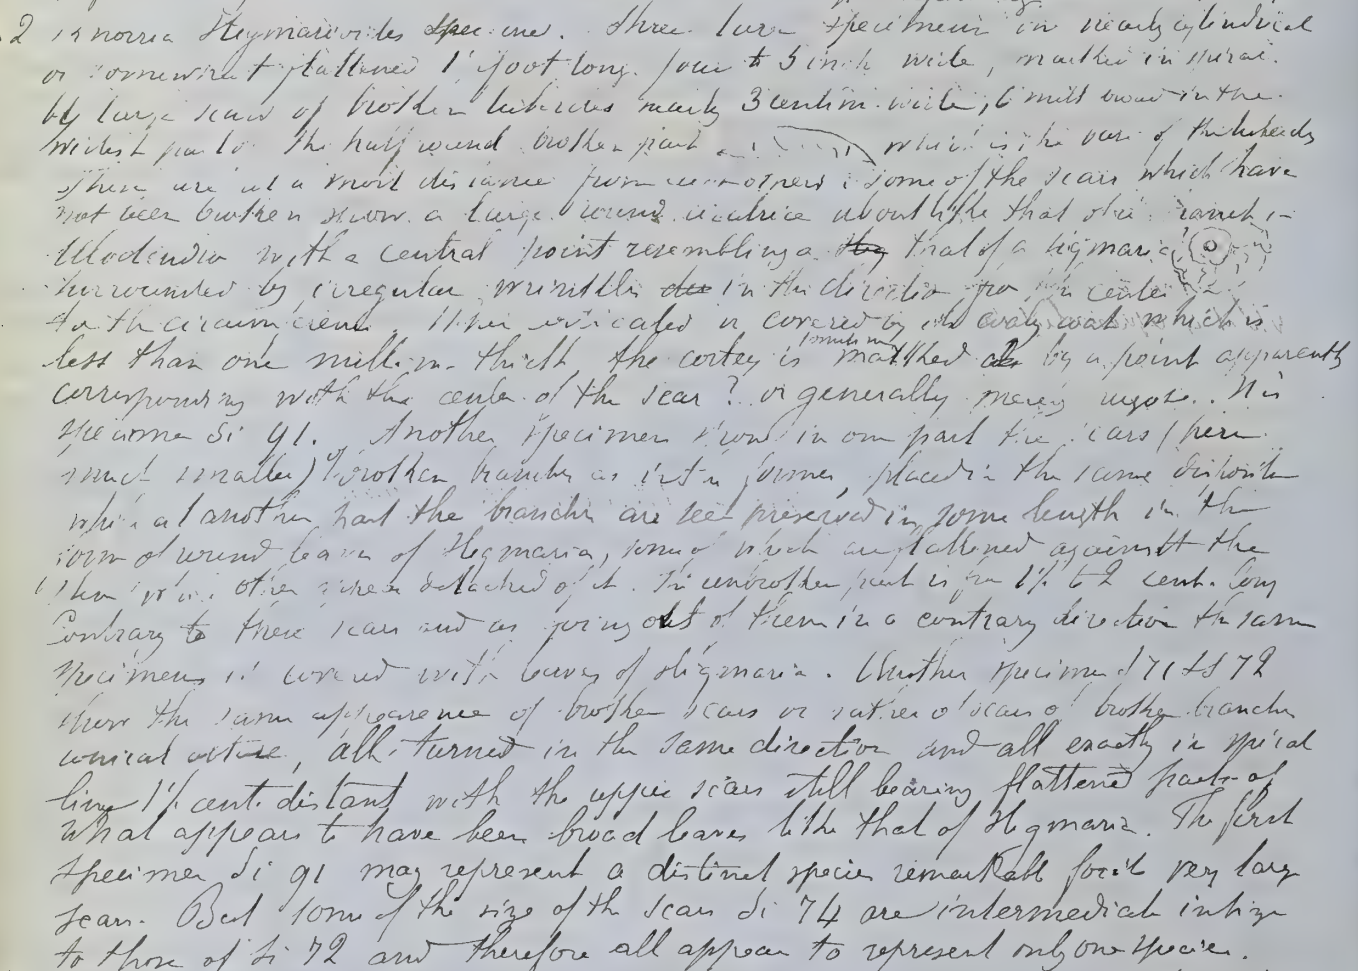 2 Stigmarioides spec. Three large specimens in nearly cylindrical
or somewhat flattened 1 foot long. four to 5 inch wide, marked in spiral.
by large scars of broken tubercles nearly 3 centim. wide, 6 mill broad in the
widest part. The half round broken part which is the base of the tubercles
These are at a most distance from some of the scars which have
not been broken show a large round cicatrice about like that of
Ulodendron with a central point resembling a that of a Stigmaria
surrounded by irregular wrinkles in the direction from the center
to the circumference. When covered by its coaly coat which is
less than one millim. thick the cortex is marked by a point apparently
corresponding with the center of the scar? or generally merely rugose. It is
specimen Si 91. Another specimen shows in one part the scars (here
much smaller) of broken branches as in the former, placed in the same disposition
while at another part the branches are seen preserved in some length in the
form of round leaves of Stigmaria, some of which are flattened against the
stem while other detached of it. The unbroken part is from 1½ to 2 cent. long
Contrary to these scars and as going out of them in a contrary direction the same
specimens is covered with leaves of Stigmaria. Another specimen Si 71 & Si 72
show the same appearance of broken scars or rather of scars of broken branches
conical, all turned in the same direction and all exactly in spiral
line 1½ cent. distant with the upper scars still bearing flattened parts of
what appears to have been broad leaves like that of Stigmaria. The first
specimen Si 91 may represent a distinct species remarkable for its very large
scars. But some of the size of the scars Si 74 are intermediate in size
to those of Si 72 and therefore all appear to represent only one species.